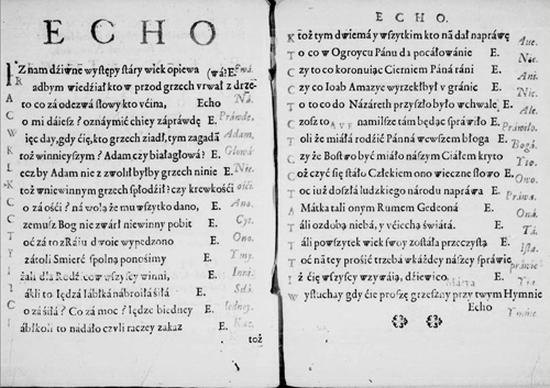 ECHO
Z nam dźiwne występy stáry wiek opiewa
adbym wiedźiał kto w przod grzech vrwał z drze- (wá? E. ewá.
to co zá odezwá słowy kto vćina, Echo Ná.
o mi dáiesz? oznáymić chćey záprawdę E. Práwdę.
ięc day, gdy ćię, kto grzech ziadł, tym zagadá E. Adam.
toż winnieyszym? Adam czy białagłowá? E. Głowá
ecz by Adam nie z wolił byłby grzech ninie E. Nie.
toż w niewinnym grzech spłodźił? czy krewkośći E. ośći.
o zá ośći? ná wolą że mu wszytko dano, E. Ano.
zemusz Bog nie zwárł niewinny pobit E. Cyt.
oć zá to z Ráiu dwoie wypędzono E. Ono.
zátoli Smierć spolną ponośimy E. Ymy.
żáli dla Rodźicow wszyscy winni, E. Inni.
ákli to Iędzá iábłká nábroiłá śiłá E. Siłá.
o zá śiłá? Co zá moc? Iędze biedney E. Iedney.
ábłkoli to nádało czyli raczey zakaz E. Kaz.
toż
ECHO.
toż tym dwiemá y wszytkim kto ná dał naprawę Aue.
o co w Ogroycu Pánu da pocáłowánie E. Nie.
zy to co koronuiąc Cierniem Páná ráni E. Ani.
zy to co Ioab Amazye wyrzekł był v gránic E. Nic.
o to co do Názáreth przyszło było w chwale E. Ale.
zosz to AVE namilsze tám będąc spráwiło E. Práwiło.
toli że miáłá rodźić Pánná wcwszem błoga E. Bogá.
zy że Bostwo być miáło nászym Ciáłem kryto E. Yto.
oż czyć się stáło Człekiem ono wieczne słowo E. Owo.
oc iuż dosziá ludzkiego národu napráwa E. Práwa.
Mátká táli onym Runem Gedeoná E. Oná.
áli ozdobą niebá, y vćiechą świátá. E. Tá.
áli powszytek wiek swoy zostáłá przeczystą E. Istá.
oć ná tey prośić trzebá w káżdey nászey spráwie E. práwie
ż ćię wszyscy wzywáią, dźiewico. E. Yco.
Márya
wysłuchay gdy ćie proszę grzeszny przy twym Hymnie
Echo Ymnie.